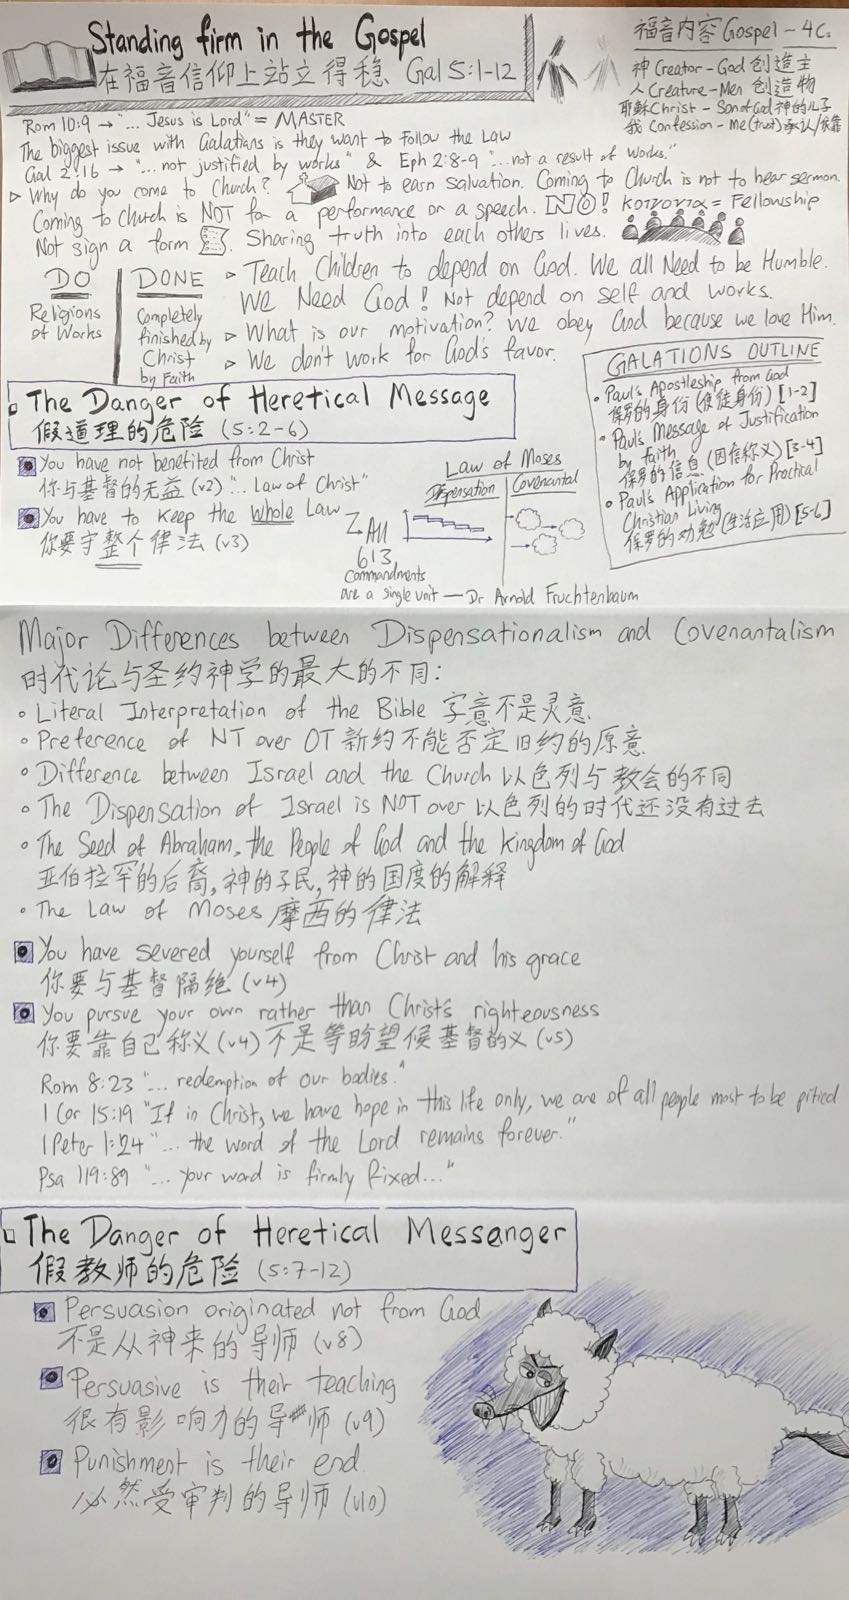 Standing firm in the Gospel
在福音信仰上站立得稳 Gal 5:1-12
福音内容 Gospel - 4Cs
神 Creator - God 创造主
人 Creature - Men 创造物
耶稣 Christ - Son of God 神的儿子
我 Confession - Me (trust) 承认/依靠
Rom 10:9 → "... Jesus is Lord" = MASTER
The biggest issue with Galatians is they want to follow the Law
Gal 2:16 → "...not justified by works" & Eph 2:8-9 "...not a result of works."
▷ Why do you come to Church? Not to earn salvation. Coming to Church is not to hear sermon.
Coming to church is NOT for a performance or a speech. NO! κοινονια = Fellowship
Not sign a form. Sharing truth into each others lives.
DO
Religions
of Works
DONE
Completely
finished by
Christ
by Faith
▷ Teach Children to depend on God. We all Need to be Humble.
We Need God! Not depend on self and works.
▷ What is our motivation? We obey God because we love Him.
▷ We don't work for God's favor.
GALATIONS OUTLINE
• Paul's Apostleship from God
保罗的身份 (使徒身份) [1-2]
• Paul's Message of Justification
by faith
保罗的信息 (因信称义) [3-4]
• Paul's Application for Practical
Christian Living
保罗的劝勉 (生活应用) [5-6]
The Danger of Heretical Message
假道理的危险 (5:2-6)
You have not benefited from Christ
你与基督的无益 (v2) "... Law of Christ"
You have to keep the whole Law
你要守整个律法 (v3)
Law of Moses
Dispensation
Covenantal
All
613
commandments
are a single unit — Dr Arnold Fruchtenbaum
Major Differences between Dispensationalism and Covenantalism
时代论与圣约神学的最大的不同:
• Literal Interpretation of the Bible 字意不是灵意
• Preference of NT over OT 新约不能否定旧约的原意
• Difference between Israel and the Church 以色列与教会的不同
• The Dispensation of Israel is NOT over 以色列的时代还没有过去
• The Seed of Abraham, the People of God and the Kingdom of God
亚伯拉罕的后裔, 神的子民, 神的国度的解释
• The Law of Moses 摩西的律法
You have severed yourself from Christ and his grace
你要与基督隔绝 (v4)
You pursue your own rather than Christ's righteousness
你要靠自己称义 (v4) 不是等盼望候基督的义 (v5)
Rom 8:23 "... redemption of our bodies."
1 Cor 15:19 "If in Christ, we have hope in this life only, we are of all people most to be pitied
1 Peter 1:24 "... the word of the Lord remains forever."
Psa 119:89 "... your word is firmly fixed..."
The Danger of Heretical Messanger
假教师的危险 (5:7-12)
Persuasion originated not from God
不是从神来的导师 (v8)
Persuasive is their teaching
很有影响力的导师 (v9)
Punishment is their end
必然受审判的导师 (v10)